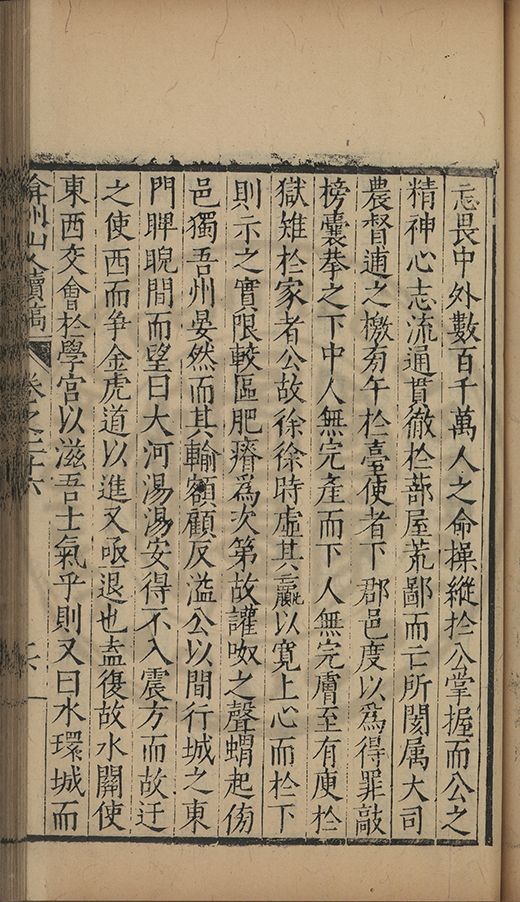 忘畏中外數百千萬人之命操縱於公掌握而公之
精神心志流通貫徹於蔀屋荒鄙而亡所閡属大司
農督逋之檄旁午於臺使者下郡邑度以為得罪敲
榜囊棊之下中人無完產而下人無完膚至有庾於
獄雉於家者公故徐徐時虛其贏以寬上心而於下
則示之實限較區肥瘠為次第故讙呶之聲蝟起傍
邑獨吾州晏然而其輸額顧反溢公以間行城之東
門睥睨間而望曰大河湯湯安得不入震方而故迂
之使西而爭金虎道以進又亟退也盍復故水關使
東西交會於學宮以滋吾士氣乎則又曰水環城而
弇州山人續稿 卷之二十六